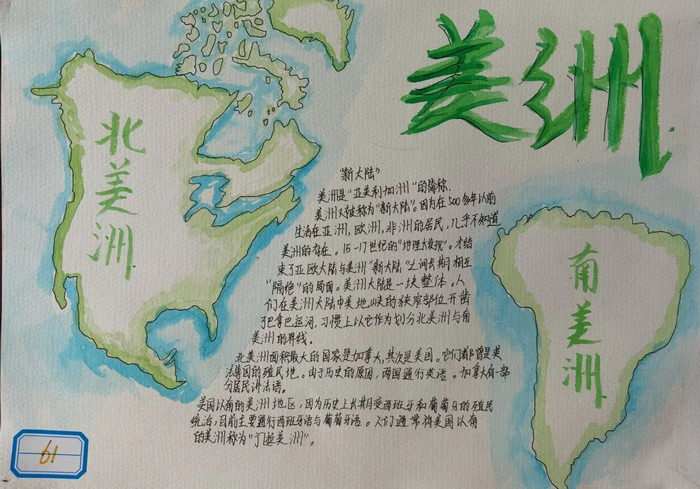 美洲
北美洲
南美洲
"新大陆"
美洲是"亚美利加洲"的简称.
美洲又被称为"新大陆"。因为在500多年以前
生活在亚洲,欧洲,非洲的居民,几乎不知道
美洲的存在。15-17世纪的"地理大发现"。才结
束了亚欧大陆与美洲"新大陆"之间长期相互
"隔绝"的局面。美洲大陆是一块整体。人
们在美洲大陆中美地峡的狭窄部位开凿
了巴拿巴运河,习惯上以它作为划分北美洲与南
美洲的界线。
北美洲面积最大的国家是加拿大,其次是美国。它们都曾是英
法等国的殖民地。由于历史的原因,两国通行英语。加拿大有一部
分居民讲法语。
美国以南的美洲地区,因为历史上长期受西班牙和葡萄牙的殖民
统治,目前主要通行西班牙语与葡萄牙语。人们通常将美国以南
的美洲称为"丁美洲"。
61